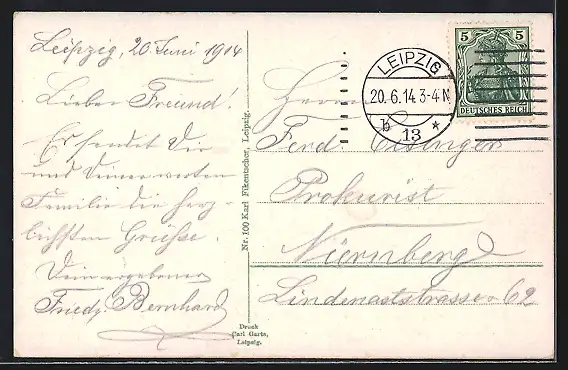 Leipzig, 20 Juni 1914
Lieber Freund.
Es sendet Dir
und Deiner werten
Familie die herz-
lichsten Grüsse.
Dein ergebener
Friedr. Bernhard
Nr. 100 Karl Fikentscher, Leipzig.
Druck
Carl Garte,
Leipzig.
LEIPZIG
20.6.14.3-4N
b 13 *
5 5
DEUTSCHES REICH
Herrn
Ferd.
Prokurist
Nürnberg
Lindenaststrasse 62